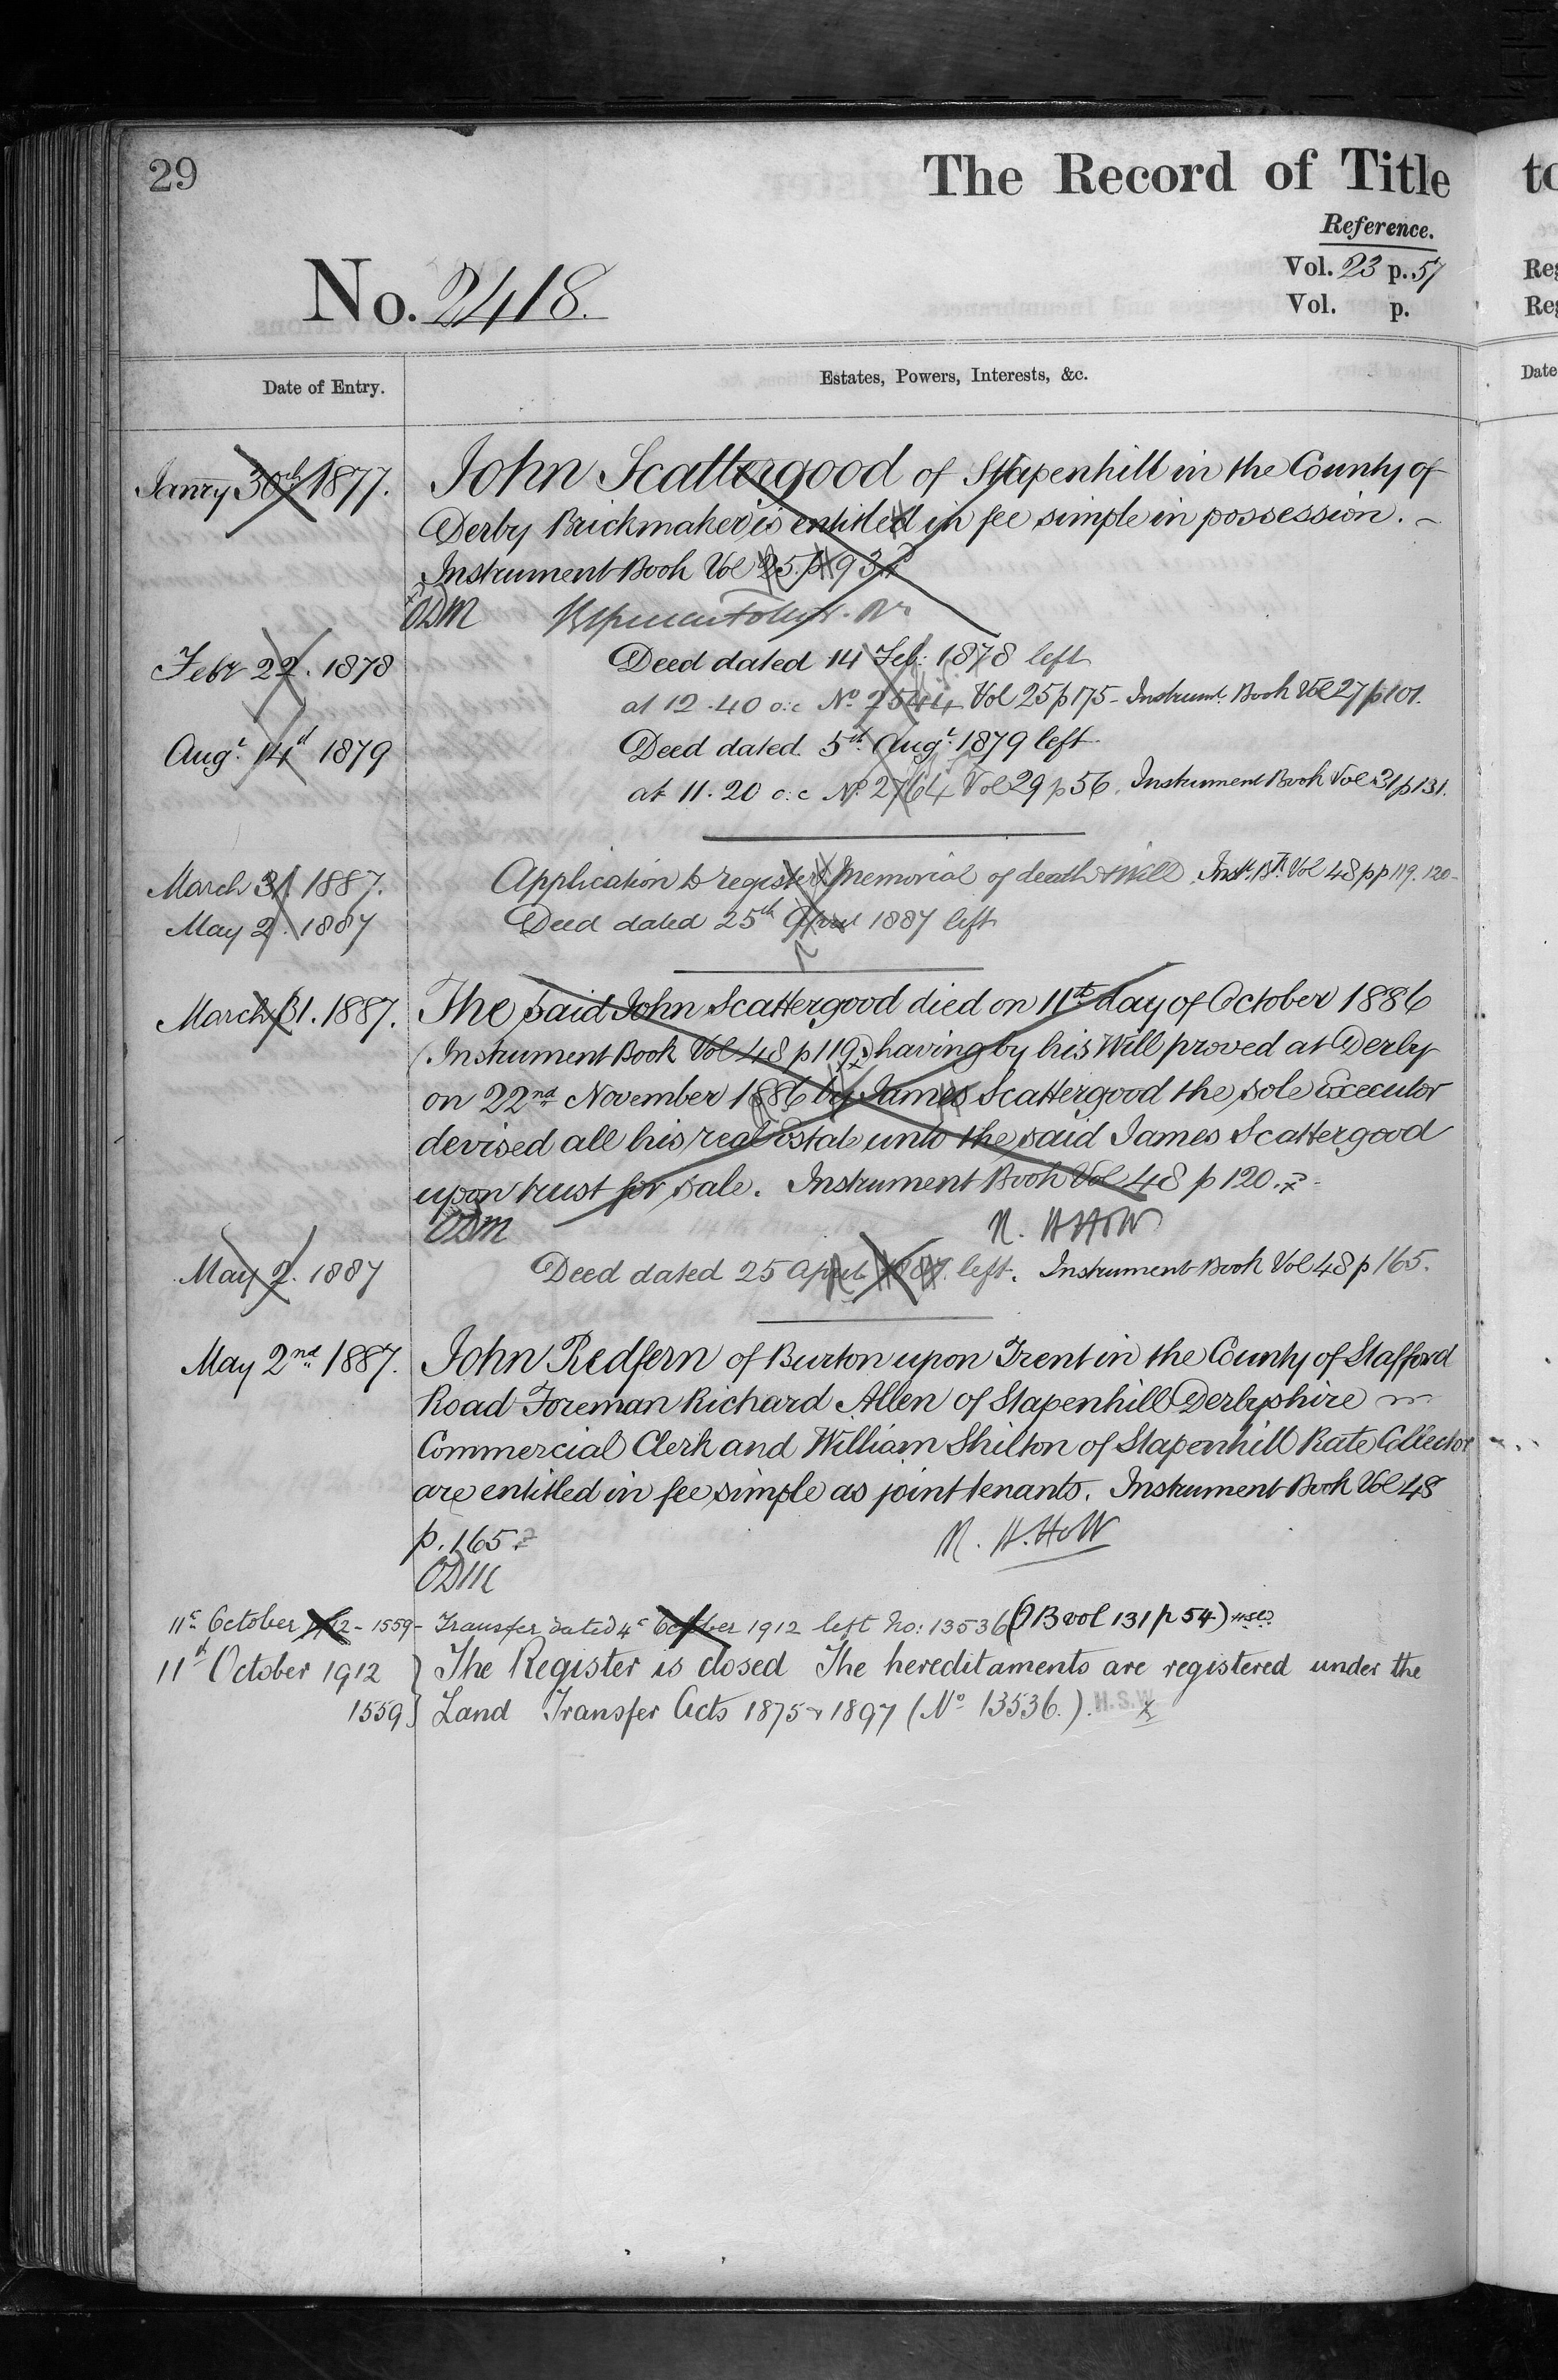 29
The Record of Title
Reference.
No. 2418.
Vol. 23 p. 57
Vol. p.
Date of Entry.
Estates, Powers, Interests, &c.
Janry 30th 1877.
John Scattergood of Stapenhill in the County of
Derby Brickmaker is entitled in fee simple in possession.
Instrument Book Vol 25. p 93.
ODM
Febr 22. 1878
Deed dated 14 Feb: 1878 left
at 12.40 o:c No 2544 Vol 25 p 175 - Instrumt. Book Vol 27 p 101.
Augt. 14th 1879
Deed dated 5th Augt. 1879 left
at 11.20 o:c No 2764 Vol 29 p 56. Instrument Book Vol 31 p 131.
March 31. 1887.
Application to register Memorial of death & Will. Inst. Bk. Vol 48 pp 119. 120-
May 2. 1887
Deed dated 25th April 1887 left
March 31. 1887.
The said John Scattergood died on 11th day of October 1886
(Instrument Book Vol 48 p 119) having by his Will proved at Derby
on 22nd November 1886 by James Scattergood the sole Executor
devised all his real Estate unto the said James Scattergood
upon trust for sale. Instrument Book Vol 48 p 120.
ODM
R. H. HoW
May 2. 1887
Deed dated 25 April 1887. left. Instrument Book Vol 48 p 165.
May 2nd 1887.
John Redfern of Burton upon Trent in the County of Stafford
Road Foreman Richard Allen of Stapenhill Derbyshire
Commercial Clerk and William Shilton of Stapenhill Rate Collector
are entitled in fee simple as joint tenants. Instrument Book Vol 48
p. 165
R. H. HoW
ODM
11th October 1912 - 1559 - Transfer dated 4th October 1912 left No: 13536 (IB vol 131 p 54) HSW
11th October 1912 } The Register is closed The hereditaments are registered under the
1559 } Land Transfer Acts 1875 & 1897 (No 13536.). H.S.W.
to
Reg
Reg
Date